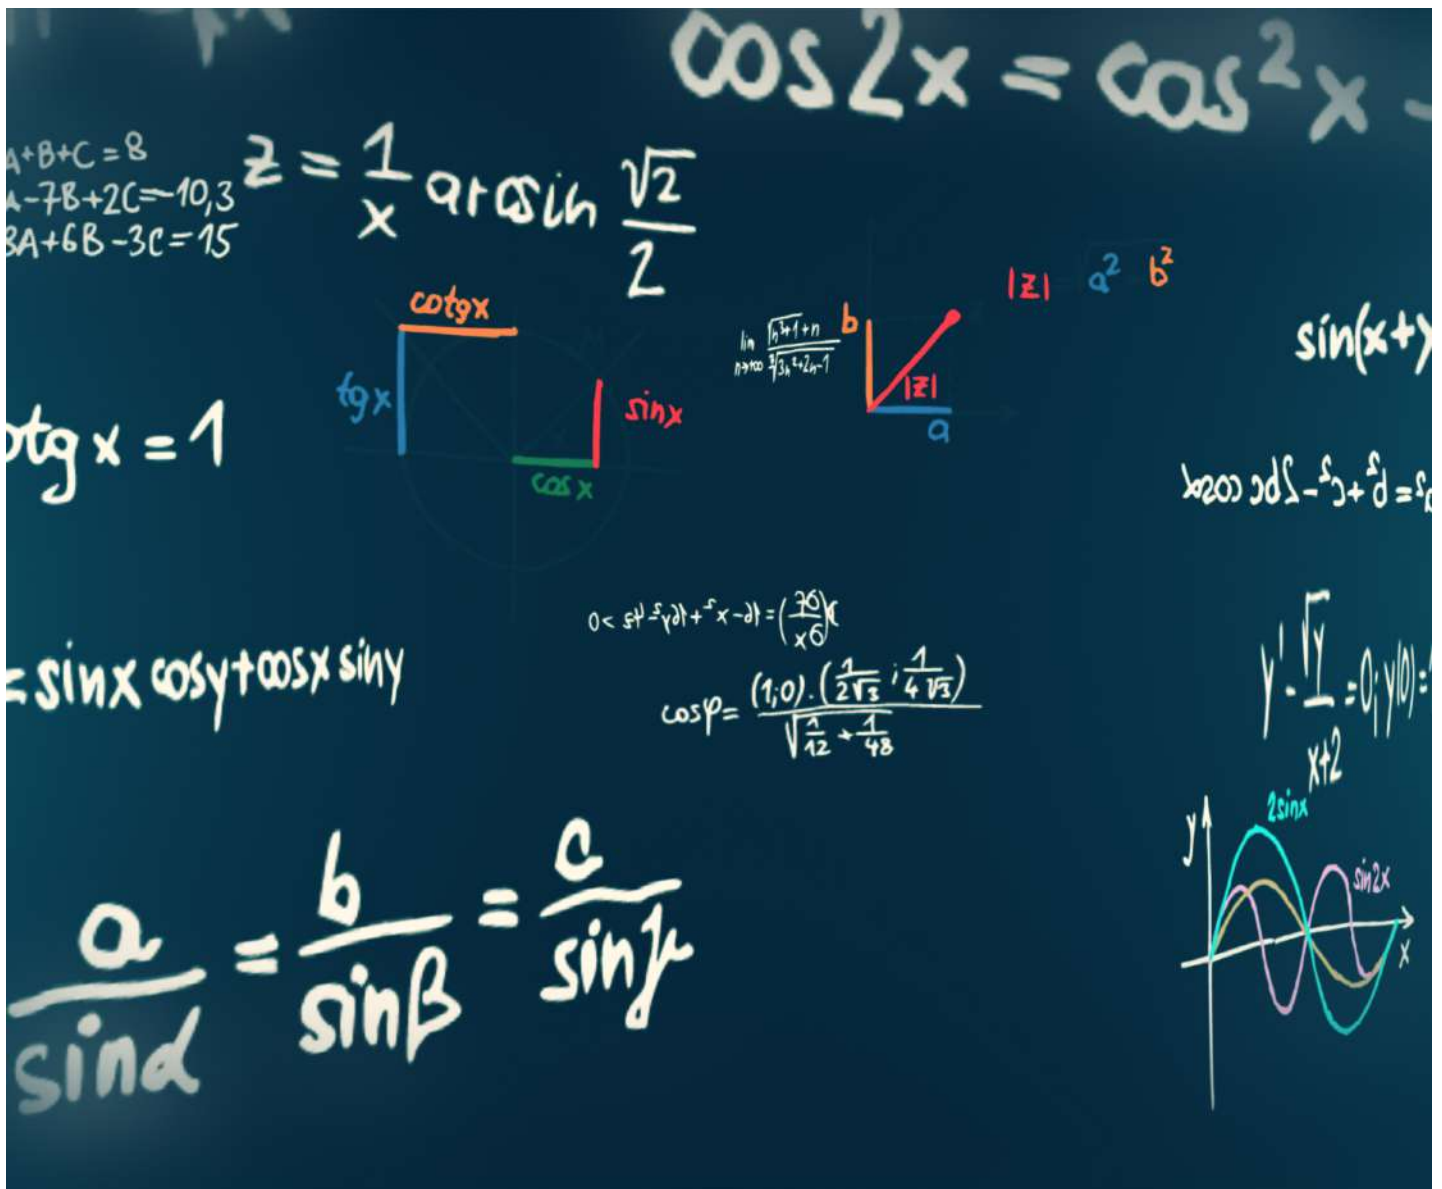 cos2x = cos²x -
A+B+C=8
A-7B+2C=-10,3
3A+6B-3C=15
z = 1/x arcsin √2/2
cotgx
tgx
sinx
cosx
lim n→∞ √(n³+1)+n / ∛(3n²+2n-1)
b
|z|
a
|z| a² b²
sin(x+y
otgx = 1
= sinx cosy+cosx siny
cosφ = (1;0).(1/2√3 ; 1/4√3) / √(1/12 + 1/48)
y' - √y/x+2 = 0; y(0) =
a/sinα = b/sinβ = c/sinγ
y
2sinx
sin2x
x